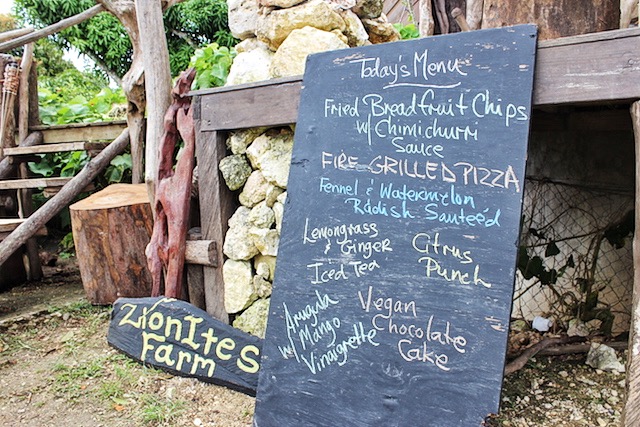 Today's Menu
Fried Breadfruit Chips
w/ Chimichurri
Sauce
FIRE GRILLED PIZZA
Fennel & Watermelon
Radish Sauteéd
Lemongrass
& Ginger
Iced Tea
Citrus
Punch
Arugula
w/ Mango
Vinaigrette
Vegan
Chocolate
Cake
ZionItes
Farm